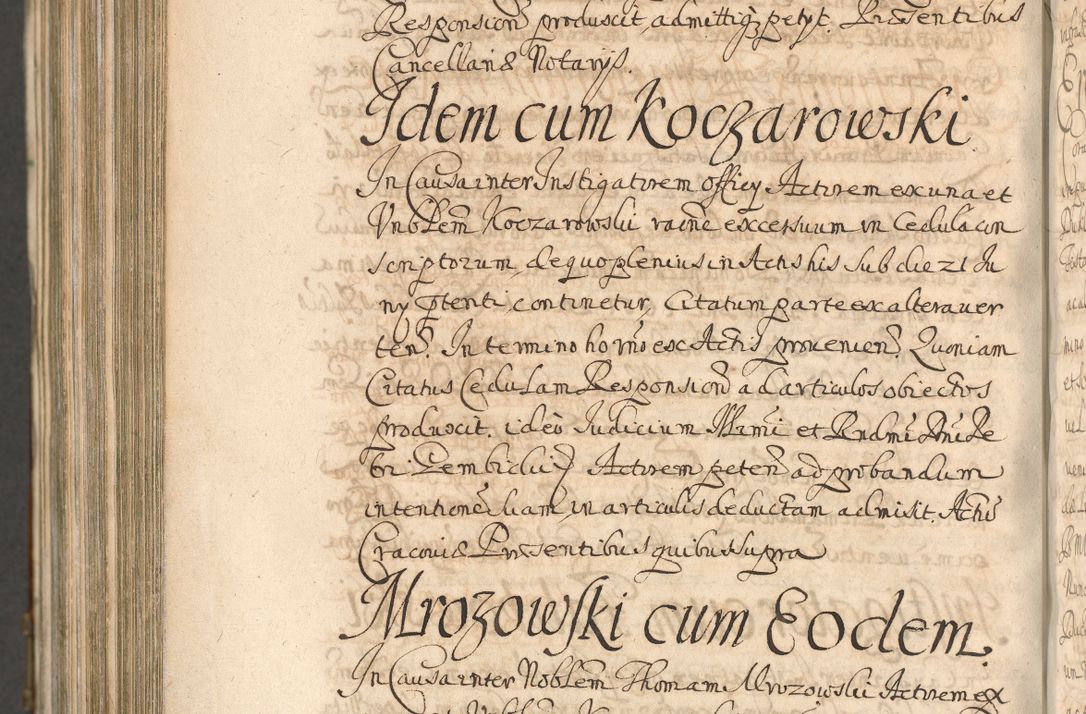 Responsionē produscit, admittiqz petyt. Præsentibus
Cancellariæ Notarijs.
Idem cum Koczarowski.
In Causa inter Instigatorem officij Actorem ex una et
Vnoblem Koczarowski raōne excessuum in Cedula con
scriptorum, de quo plenius in Actis his sub die 21 Ju
nij ptenti, continetur, Citatum parte ex altera ver
ten. In termino horno ex Actis provenien. Quoniam
Citatus Cedulam Responsionē ad articulos obiectos
produxit. ideo Judicium Illrmi et Rndmi Dni Pe
tri Gembicki Actorem peten ad probandum
intentionē suam, in articulis deductam admisit. Actis
Cracoviæ Præsentibus quibus supra
Mrozowski cum Eodem.
In Causa inter Noblem Thomam Mrozowski Actorem ex